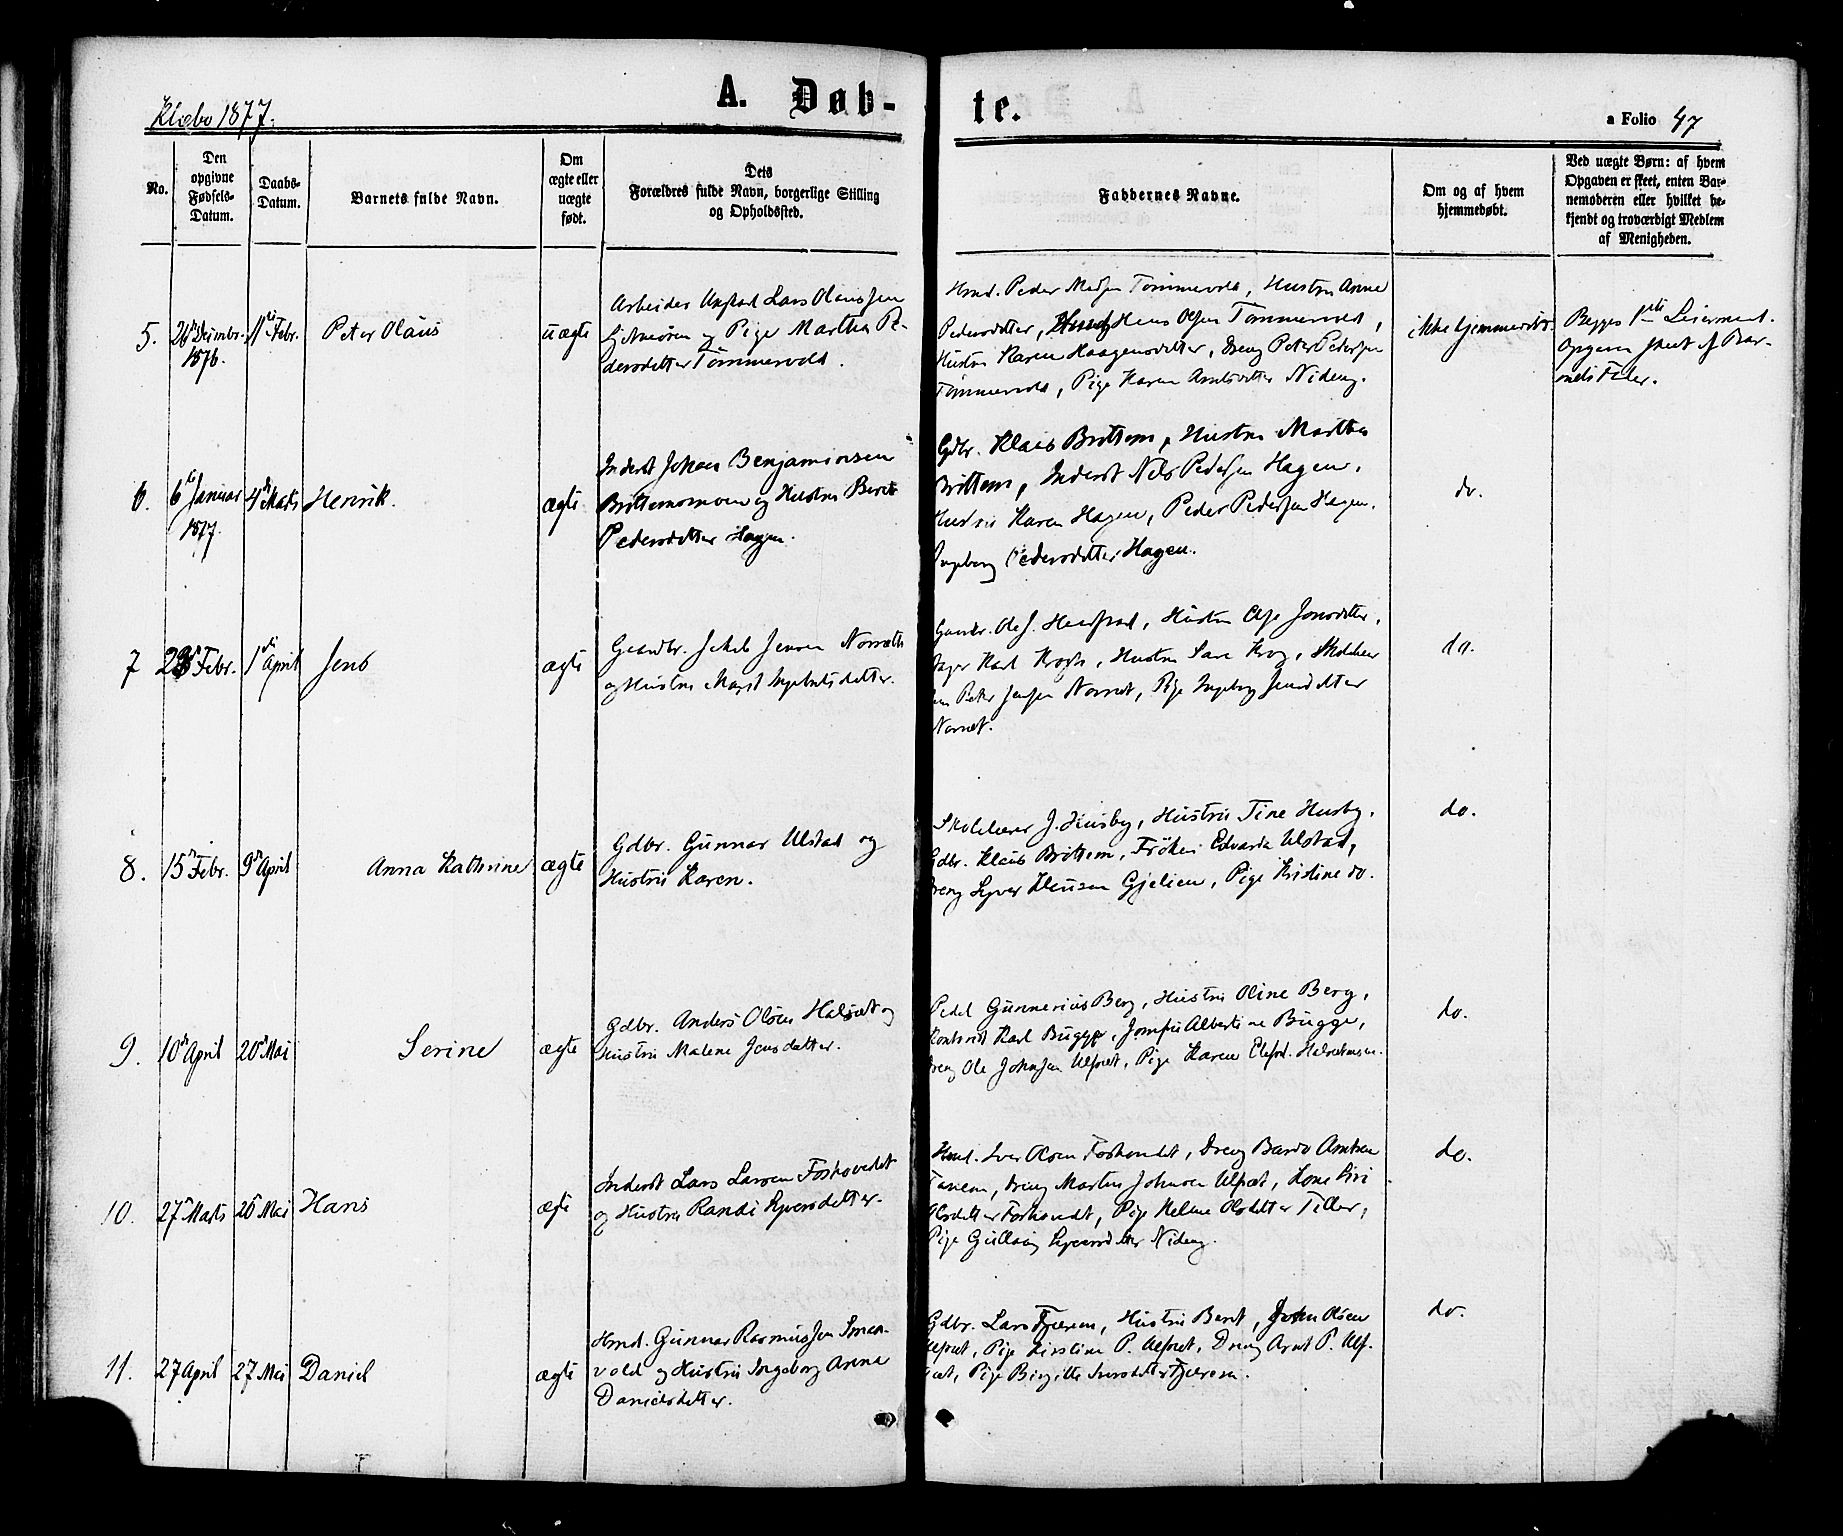 Klæbo 1877.
A. Døb-
te.
a Folio 47
No.
Den
opgivne
Fødsels-
Datum.
Daabs-
Datum.
Barnets fulde Navn.
Om
ægte eller
uægte
født.
Dets
Forældres fulde Navn, borgerlige Stilling
og Opholdssted.
Faddernes Navne.
Om og af hvem
hjemmedøbt.
Ved uægte Børn: af hvem
Opgaven er skeet, enten Bar-
nemoderen eller hvilket be-
kjendt og troværdigt Medlem
af Menigheden.
5.
Decmbr.
1876.
11 Febr.
Peter Olaus
uægte
Arbeider Lars Olaussen
og Pige Martha Pe-
dersdatter Tømmervold.
Hmd. Peder Tømmervold, Hustru Anne
Pedersdatter, Hans Olsen Tømmervold,
Hustru Karen Haagensdatter, Dreng Peter Pedersen
Tømmervold, Pige Karen Nideng.
ikke hjemmedøbt.
Begges 1ste Leiermaal.
Opgaven skeet af Bar-
nets Fader.
6.
6 Januar
1877.
4 Marts
Henrik.
ægte
Inderst Johan Benjaminsen
Brøttemsmoen og Hustru Beret
Pedersdatter Hagen.
Gdbr. Klaus Brøttem, Hustru Martha
Brøttem, Inderst Nils Pedersen Hagen,
Hustru Karen Hagen, Peder Pedersen Hagen,
Ingeborg Pedersdatter Hagen.
do.
7
Febr.
1 April
Jens
ægte
Gaardbr. Jakob Jensen
og Hustru Marit Ingebrigtsdatter.
Gaardbr. Ole J. Hustru Jonsdatter,
Karl Krogh, Hustru Krog,
Peter Jensen Pige Ingeborg Jensdatter
do.
8.
15 Febr.
9 April
Anna Kathrine
ægte
Gdbr. Gunnar Ulstad og
Hustru Karen.
Skolelærer J. Husby, Hustru Tine Husby,
Gdbr. Klaus Brøttem, Frøken Edvarda Ulstad,
Dreng Sivert Gjelien, Pige Kristine do.
do.
9.
10 April
20 Mai
Serine
ægte
Gdbr. Anders Olsen Halset og
Hustru Malene Jensdatter.
Pedel Gunnerius Berg, Hustru Oline Berg,
Karl Bugge, Jomfru Albertine Bugge,
Dreng Ole Johnsen Ulset, Pige Karen
do.
10.
27 Marts
26 Mai
Hans
ægte
Inderst Lars Larsen Forhovedet
og Hustru Randi Syversdatter.
Hmd. Iver Olsen Dreng Bardo Arntsen
Tanem, Dreng Martin Johnsen Ulset, Kone Siri
Olsdatter Pige Helene Olsdatter Tiller,
Pige Nideng.
do.
11.
27 April
27 Mai
Daniel
ægte
Hmd. Gunnar Rasmussen
vold og Hustru Ingeborg Anna
Danielsdatter.
Gdbr. Lars Fjærem, Hustru Beret, John Olsen
Ulset, Pige Kirstine P. Ulset, Dreng Arnt P. Ulf-
sæt, Pige Birgitte Fjærem.
do.